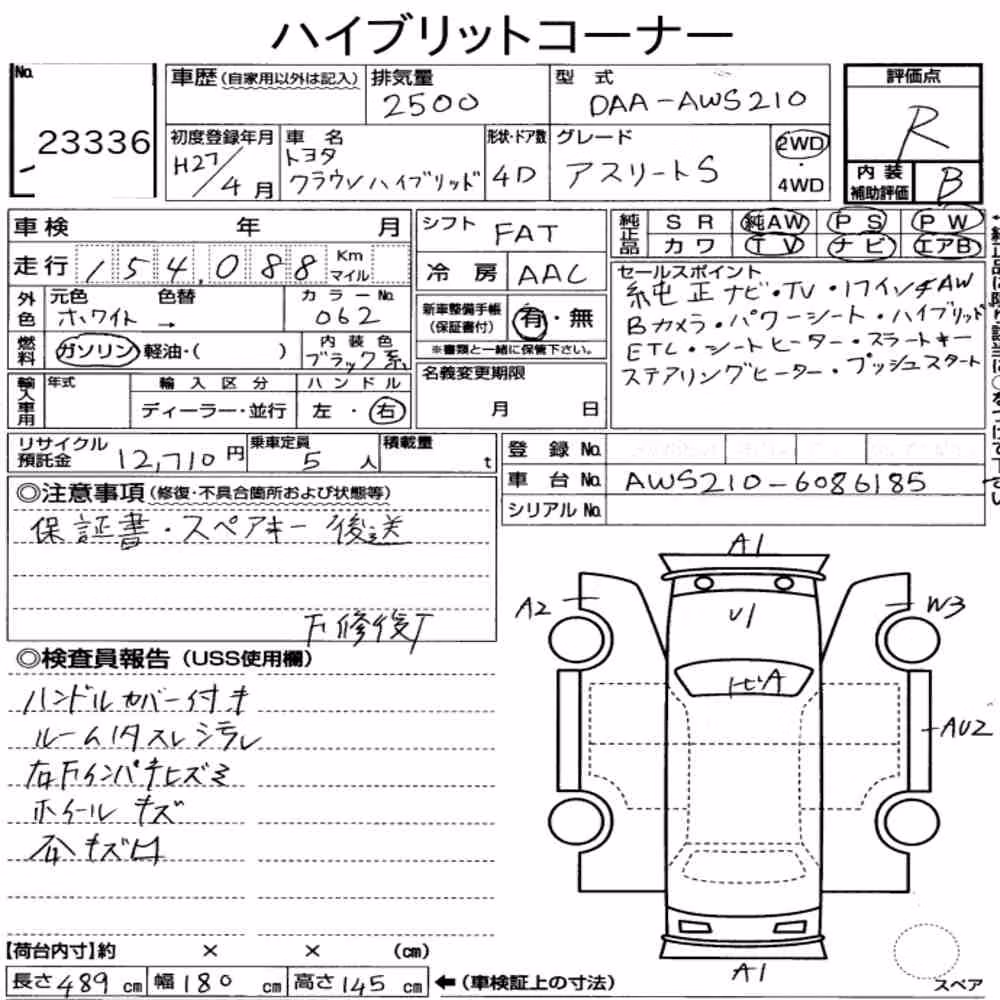 ハイブリットコーナー
No. 23336
車歴(自家用以外は記入)
排気量 2500
型式 DAA-AWS210
評価点 R
初度登録年月 H27/4月
車名 トヨタ クラウンハイブリッド
形状・ドア数 4D
グレード アスリートS
2WD・4WD
内装補助評価 B
車検 年 月
走行 154,088 Km マイル
シフト FAT
冷房 AAC
純正品 SR 純AW PS PW
カワ TV ナビ エアB
外色 元色 ホワイト → 色替
カラーNo. 062
新車整備手帳(保証書付) 有・無
※書類と一緒に保管下さい。
セールスポイント
純正ナビ・TV・17インチAW
Bカメラ・パワーシート・ハイブリッド
ETC・シートヒーター・スマートキー
ステアリングヒーター・プッシュスタート
燃料 ガソリン 軽油・( )
内装色 ブラック系
輸入車用 年式 輸入区分 ディーラー・並行
ハンドル 左・右
名義変更期限 月 日
リサイクル預託金 12,710円
乗車定員 5人
積載量 t
登録No.
車台No. AWS210-6086185
シリアルNo.
◎注意事項(修復・不具合箇所および状態等)
保証書・スペアキー後送
◎検査員報告(USS使用欄)
ハンドルカバー付き
ルーム内スレシミ
ホイールキズ
A1
A2
U1
W3
AU2
A1
スペア
【荷台内寸】約 × × (cm)
長さ489cm 幅180cm 高さ145cm ←(車検証上の寸法)